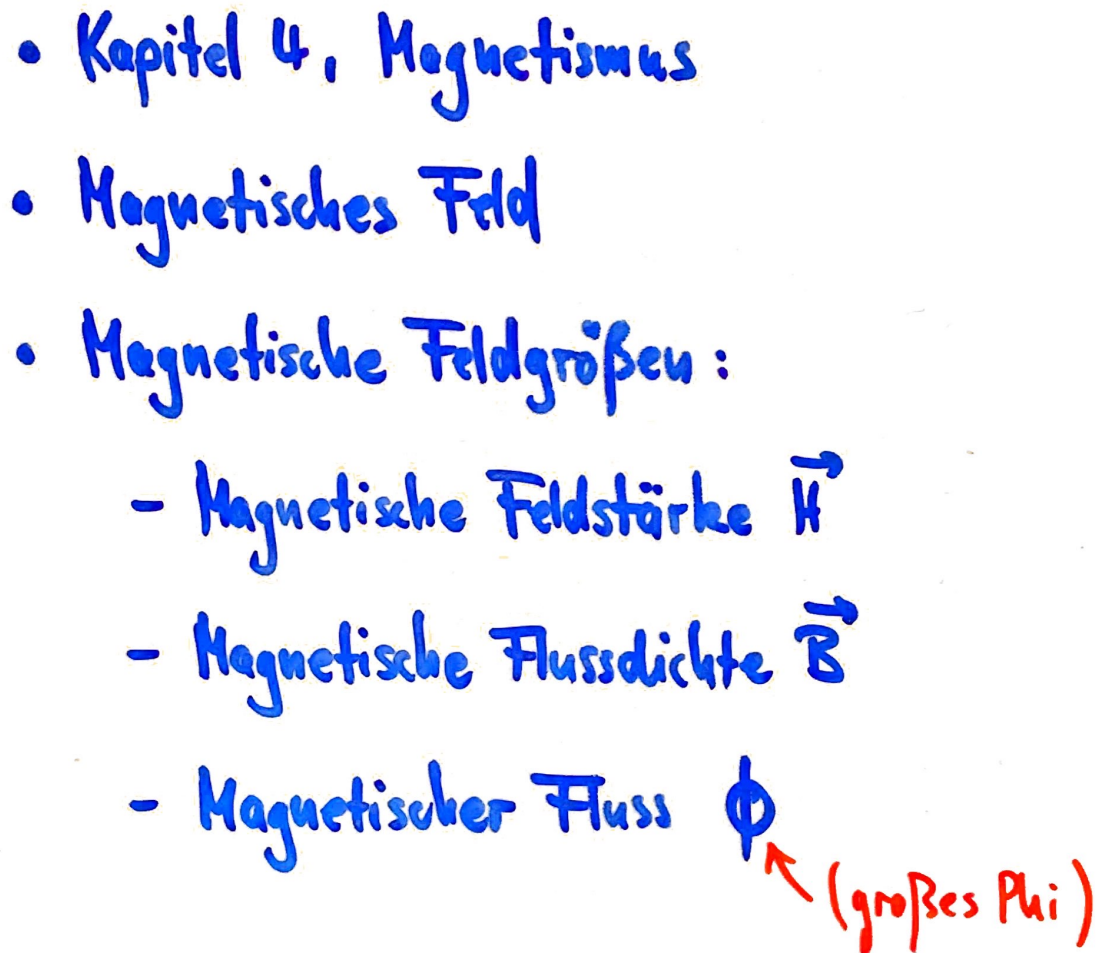 • Kapitel 4, Magnetismus
• Magnetisches Feld
• Magnetische Feldgrößen:
- Magnetische Feldstärke H⃗
- Magnetische Flussdichte B⃗
- Magnetischer Fluss ϕ
(großes Phi)